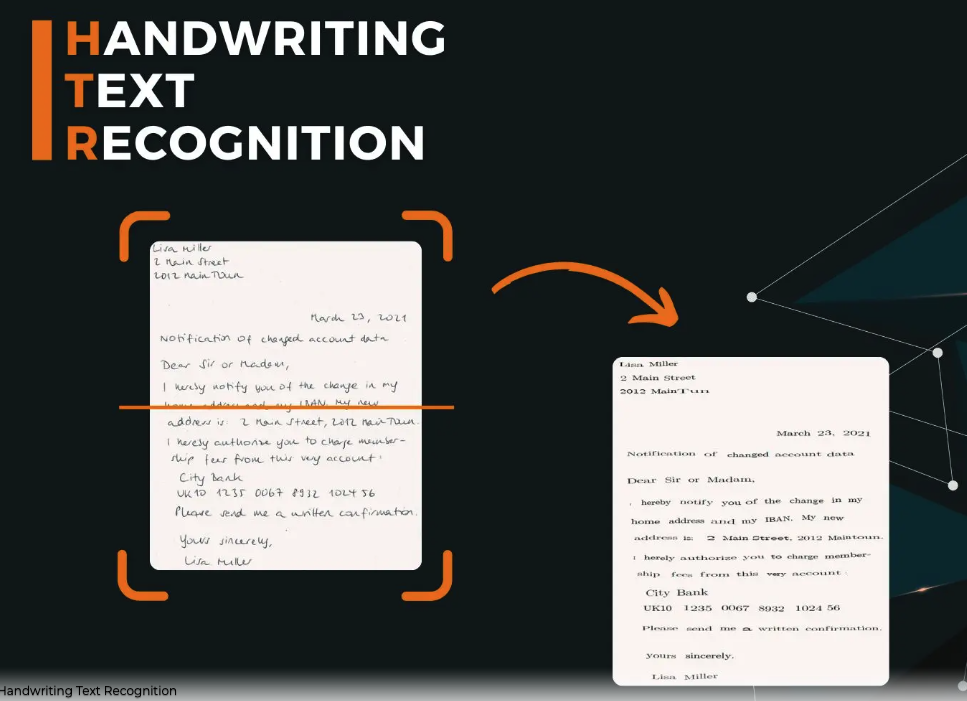 HANDWRITING
TEXT
RECOGNITION
Lisa Miller
2 Main Street
2012 MainTown
March 23, 2021
Notification of changed account data
Dear Sir or Madam,
I hereby notify you of the change in my
home address and my IBAN. My new
address is: 2 Main Street, 2012 MainTown.
I hereby authorize you to charge member-
ship fees from this very account:
City Bank
UK10 1235 0067 8932 1024 56
Please send me a written confirmation.
Yours sincerely,
Lisa Miller
Lisa Miller
2 Main Street
2012 MainTurn
March 23, 2021
Notification of changed account data
Dear Sir or Madam,
hereby notify you of the change in my
home address and my IBAN. My new
address is: 2 Main Street, 2012 Maintoun.
I herely authorize you to charge member-
ship fees from this very account
City Bank
UK10 1235 0067 8932 1024 56
Please send me a written confirmation.
yours sincerely.
Lisa Miller
Handwriting Text Recognition